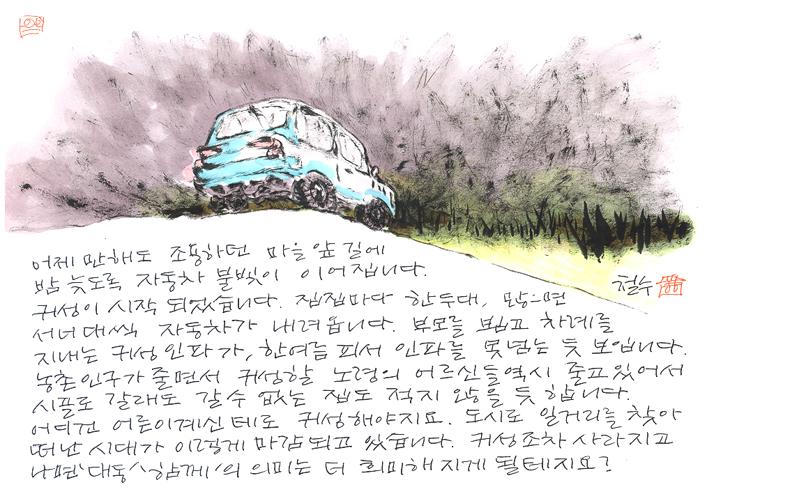 어제 만해도 조용하던 마을 앞 길에
밤 늦도록 자동차 불빛이 이어집니다.
귀성이 시작 되었습니다. 집집마다 한두대, 많으면
서너대씩 자동차가 내려옵니다. 부모를 뵙고 차례를
지내는 귀성인파가, 한여름 피서 인파를 못넘는 듯 보입니다.
농촌인구가 줄면서 귀성할 노령의 어르신들역시 줄고있어서
시골로 갈래도 갈 수 없는 집도 적지 않을 듯 합니다.
어디건 어른이계신 데로 귀성해야지요. 도시로 일거리를 찾아
떠난 시대가 이렇게 마감되고 있습니다. 귀성조차 사라지고
나면 '대동' '함께'의 의미는 더 희미해지게 될테지요?
철수